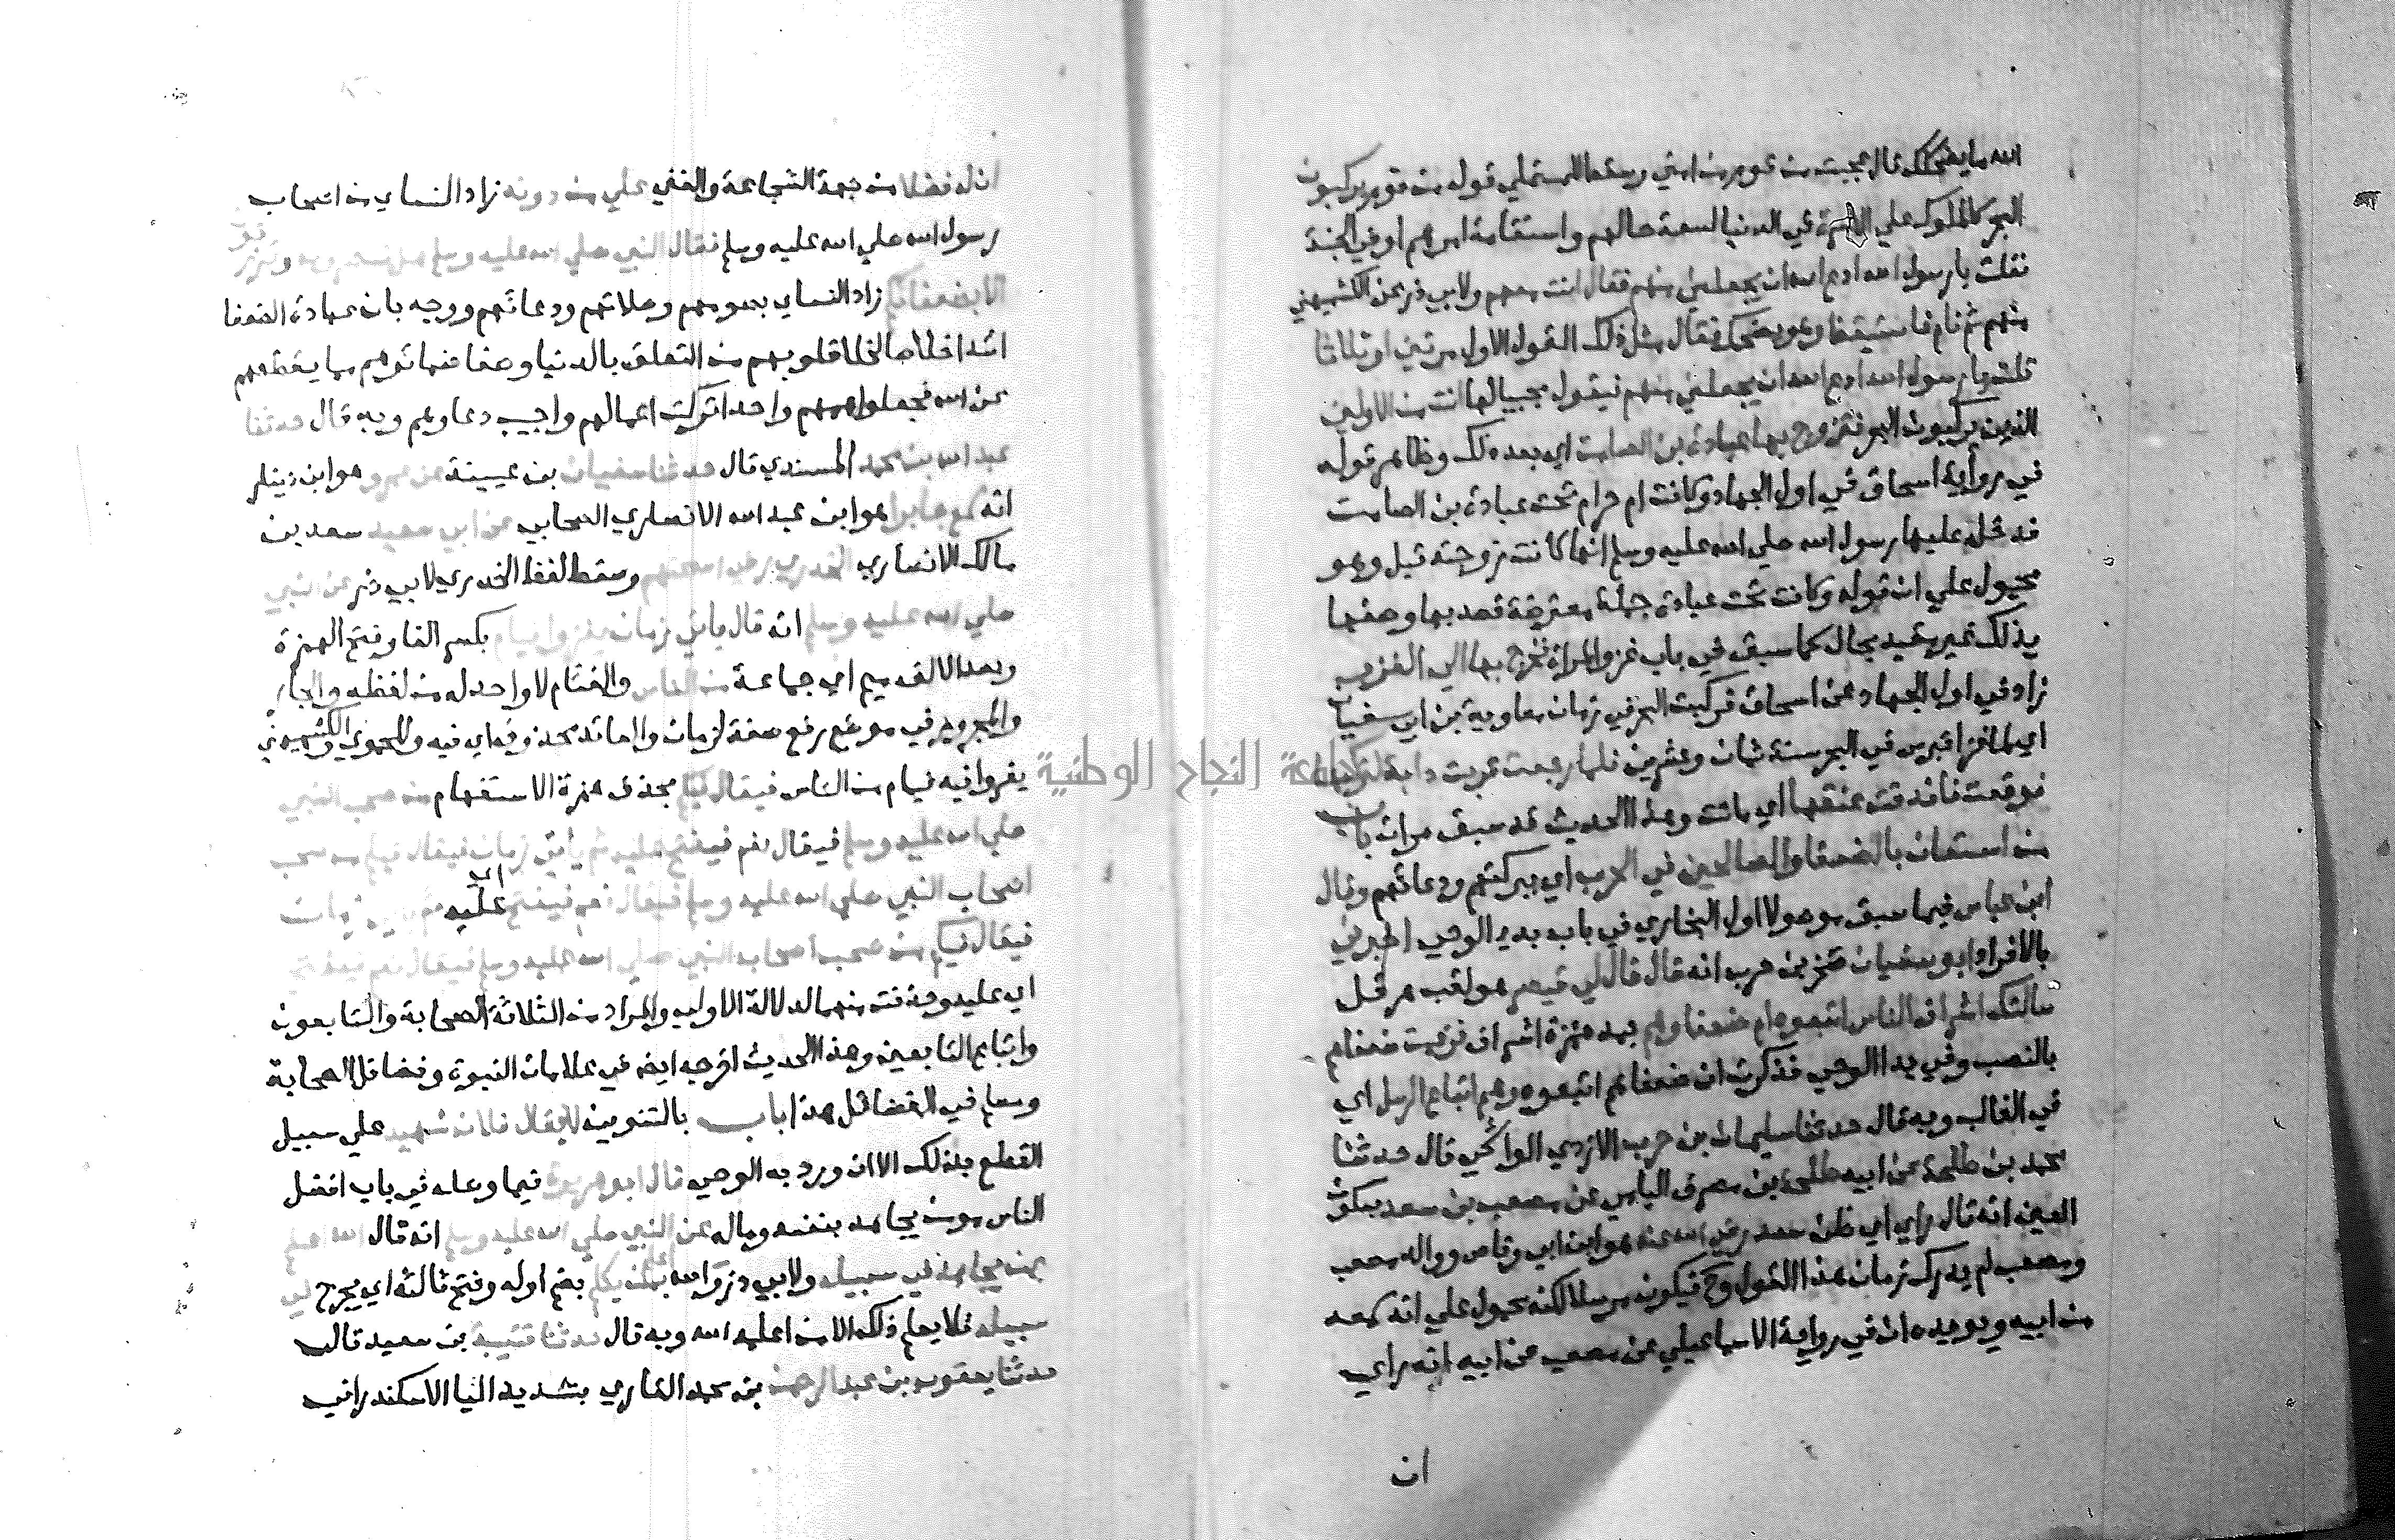 الله ما يضحكك قال عجبت من قوم من امتي وسقط للمستملي قوله من قوم يركبون
البحر كالملوك علي الاسرة في الدنيا لسعة حالهم واستقامة امرهم او في الجنة
فقلت يا رسول الله ادع الله ان يجعلني منهم فقال انت معهم ولابي ذر عن الكشميهني
منهم ثم نام فاستيقظ وهو يضحك فقال مثل ذلك القول الاول مرتين او ثلاثا
قلت يا رسول الله ادع الله ان يجعلني منهم فيقول مجيبا لها انت من الاولين
الذين يركبون البحر فتزوج بها عبادة بن الصامت اي بعد ذلك وظاهر قوله
في رواية اسحاق في اول الجهاد وكانت ام حرام تحت عبادة بن الصامت
فدخل عليها رسول الله صلي الله عليه وسلم انها كانت زوجته قبل وهو
محمول علي ان قوله وكانت تحت عبادة جملة معترضة قصد بها وصفها
بذلك غير مقيد بحال كما سبق في باب غزو المراة فخرج بها الي الغزو
زاد في اول الجهاد عن اسحاق فركبت البحر في زمان معاوية بن ابي سفيان
اي لما غزا قبرس في البحر سنة ثمان وعشرين فلما رجعت قربت دابة لتركبها
فوقعت فاندقت عنقها اي ماتت وهذا الحديث قد سبق مرات باب
من استعان بالضعفا والصالحين في الحرب اي ببركتهم ودعائهم وقال
ابن عباس فيما سبق موصولا اول البخاري في باب بدء الوحي اخبرني
بالافراد ابو سفيان صخر بن حرب انه قال قال لي قيصر هو لقب هرقل
سالتك اشراف الناس اتبعوه ام ضعفاوهم بمد همزة اشراف فزعمت ضعفاهم
بالنصب وفي بدا الوحي فذكرت ان ضعفاهم اتبعوه وهم اتباع الرسل اي
في الغالب وبه قال حدثنا سليمان بن حرب الازدي الواشحي قال حدثنا
محمد بن طلحة عن ابيه طلحة بن مصرف اليامي عن مصعب بن سعد بسكون
العين انه قال راي اي ظن سعد رضي الله عنه هو ابن ابي وقاص ووالد مصعب
ومصعب لم يدرك زمان هذا القول وح فيكون مرسلا لكنه محمول علي انه سمعه
من ابيه ويويده ان في رواية الاسماعيلي عن مصعب عن ابيه انه راي
ان
ان له فضلا من جهة الشجاعة والغني علي من دونه زاد النساي من اصحاب
رسول الله صلي الله عليه وسلم فقال النبي صلي الله عليه وسلم هل تنصرون وترزقون
الا بضعفائكم زاد النساي بصومهم وصلاتهم ودعائهم ووجه بان عبادة الضعفا
اشد اخلاصا لخلا قلوبهم من التعلق بالدنيا وصفا ضمائرهم مما يقطعهم
عن الله فجعلوا همهم واحدا فزكت اعمالهم واجيب دعاوهم وبه قال حدثنا
عبد الله بن محمد المسندي قال حدثنا سفيان بن عيينة عن عمرو هو ابن دينار
انه سمع جابرا هو ابن عبد الله الانصاري الصحابي عن ابي سعيد سعد بن
مالك الانصاري الخدري رضي الله عنهم وسقط لفظ الخدري لابي ذر عن النبي
صلي الله عليه وسلم انه قال ياتي زمان يغزوا فيام بكسر الفا وفتح الهمزة
وبعد الالف ميم اي جماعة من الناس والفئام لا واحد له من لفظه والجار
والمجرور في موضع رفع صفة لزمان والعائد محذوف اي فيه وللحموي والكشميهني
يغزوا فيه فيام من الناس فيقال فيكم بحذف همزة الاستفهام من صحب النبي
صلي الله عليه وسلم فيقال نعم فيفتح عليه ثم ياتي زمان فيقال فيكم من صحب
اصحاب النبي صلي الله عليه وسلم فيقال نعم فيفتح اي عليه ثم ياتي زمان
فيقال فيكم من صحب صاحب اصحاب النبي صلي الله عليه وسلم فيقال نعم فيفتح
اي عليه وحذفت منهما لدلالة الاولي والمراد من الثلاثة الصحابة والتابعون
واتباع التابعين وهذا الحديث اخرجه ايضا في علامات النبوة وفضائل الصحابة
ومسلم في الفضائل هذا باب بالتنوين لا يقال فلان شهيد علي سبيل
القطع بذلك الا ان ورد به الوحي قال ابو هريرة فيما وصله في باب افضل
الناس مومن يجاهد بنفسه وماله عن النبي صلي الله عليه وسلم انه قال الله اعلم
بمن يجاهد في سبيله ولابي ذر والله اعلم بمن يكلم بضم اوله وفتح ثالثه اي يجرح في
سبيله فلا يعلم ذلك الا من اعلمه الله وبه قال حدثنا قتيبة بن سعيد قال
حدثنا يعقوب بن عبد الرحمن بن محمد القاري بتشديد اليا الاسكندراني
جامعة النجاح الوطنية